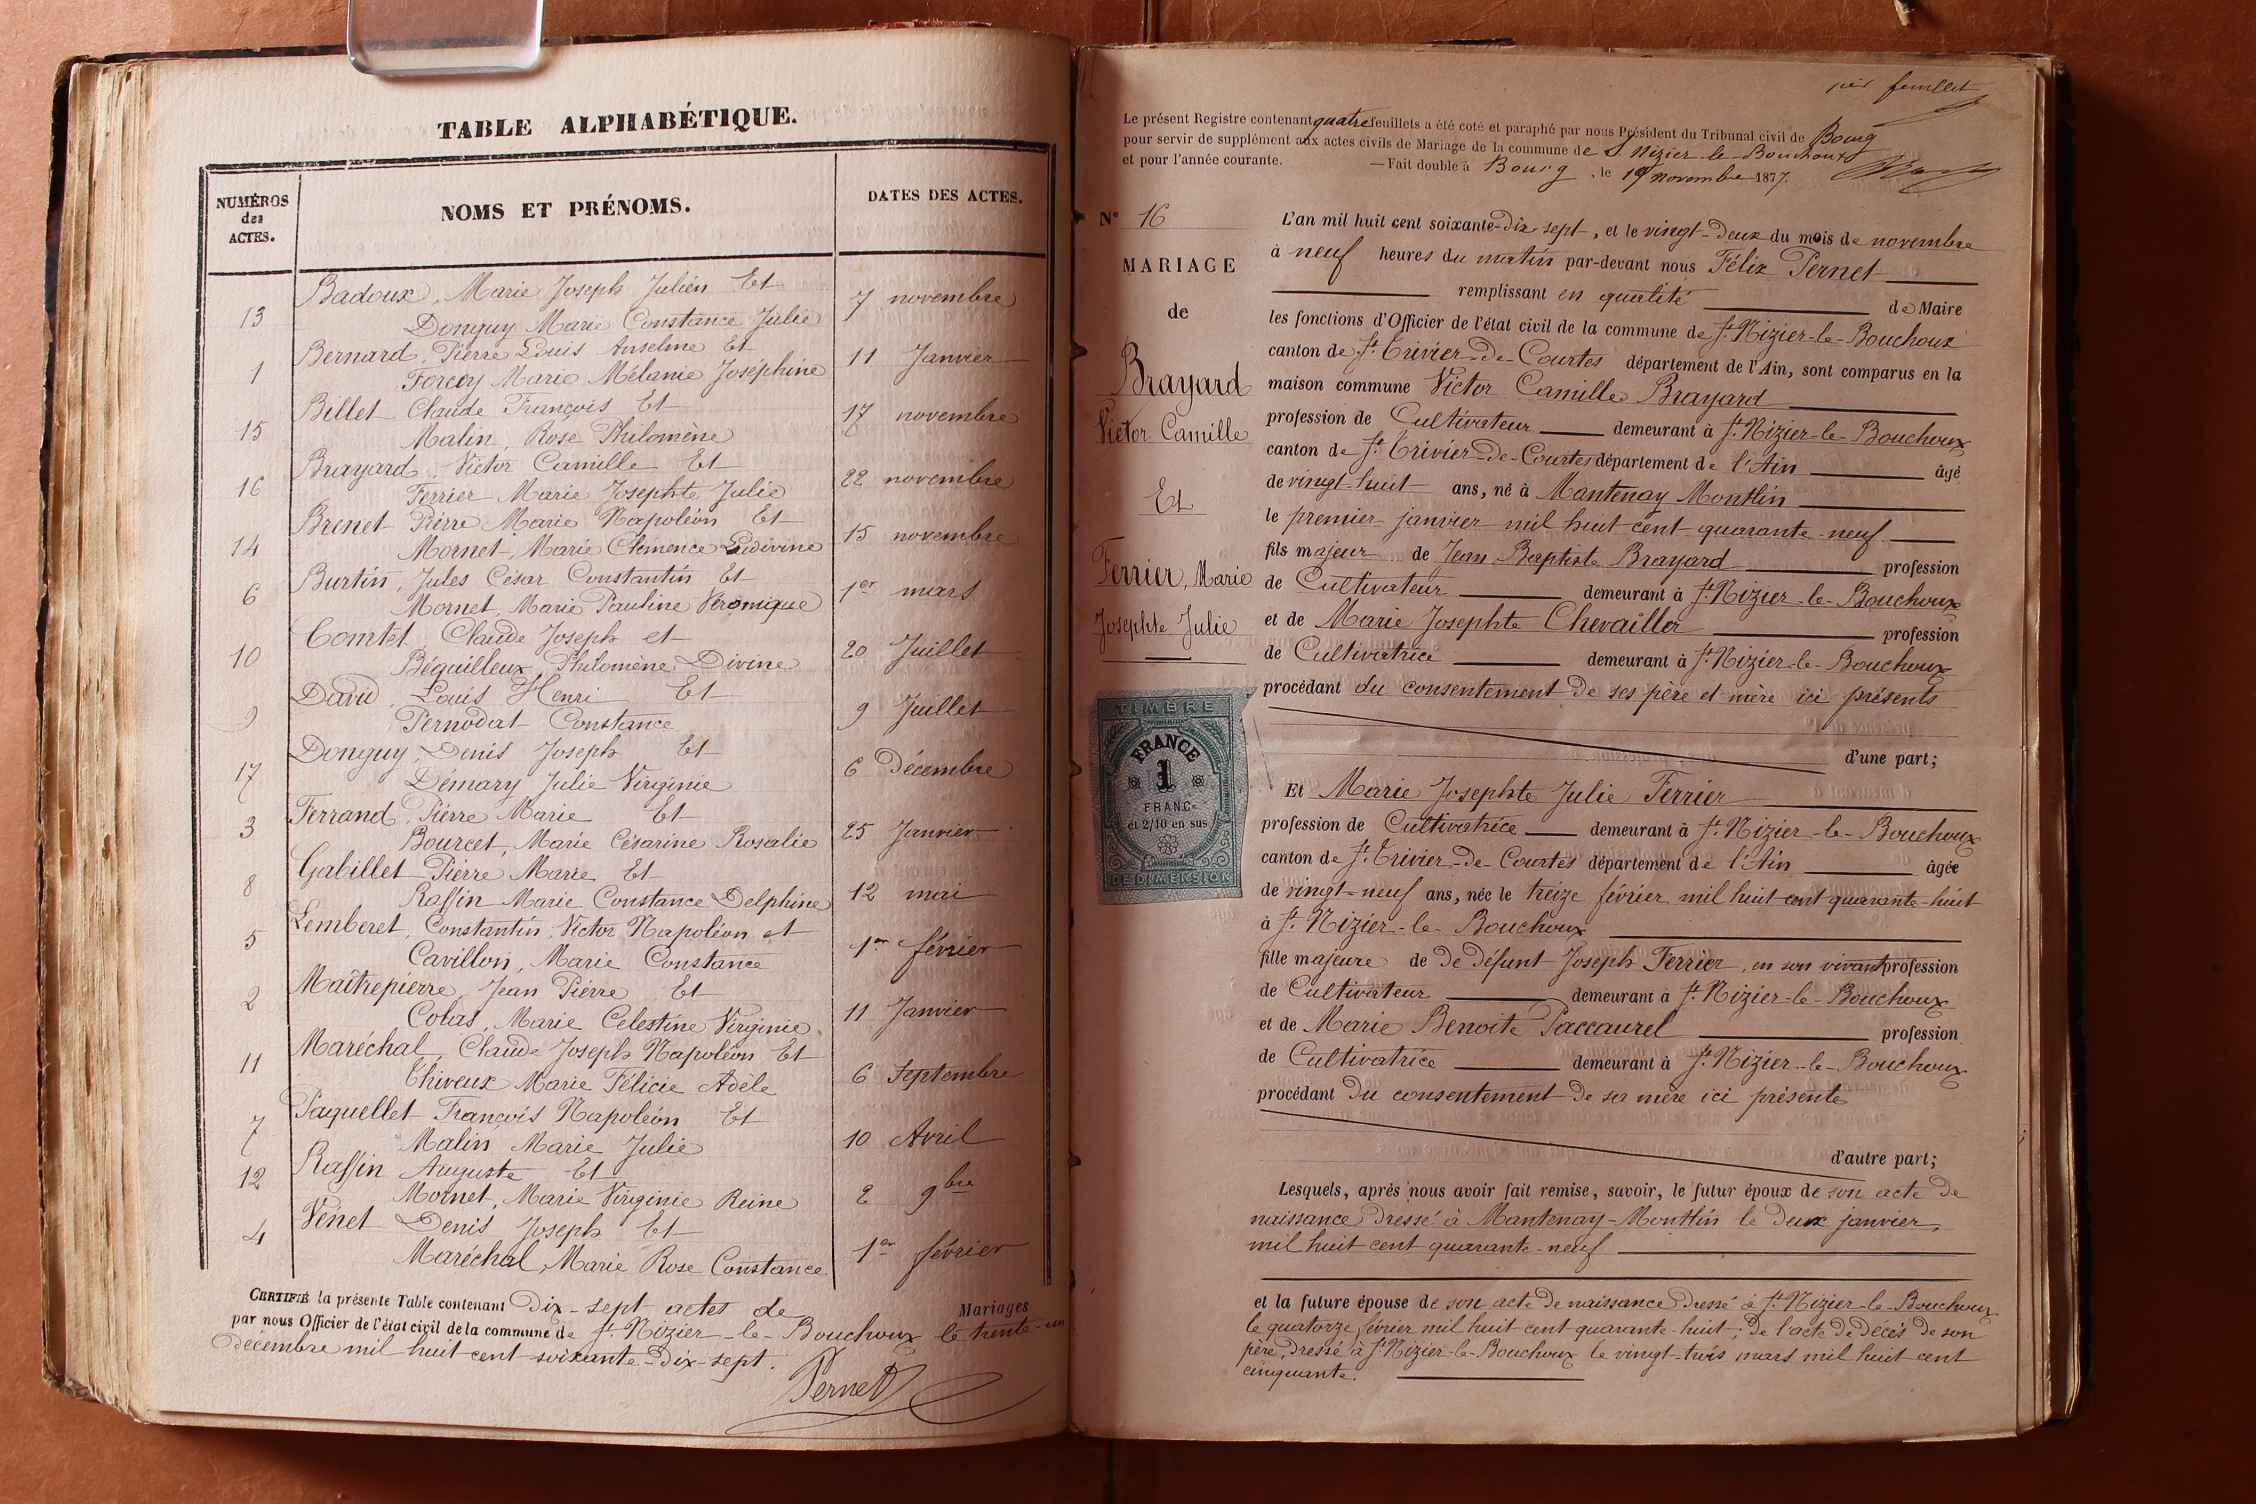 TABLE ALPHABÉTIQUE.
NUMÉROS
des
ACTES.
NOMS ET PRÉNOMS.
DATES DES ACTES.
Badoux, Marie Joseph Julien Et
13 Donguy Marie Constance Julie 7 novembre
Bernard, Pierre Louis Anselme Et
1 Forcey Marie Mélanie Joséphine 11 Janvier
Billet Claude François Et
15 Malin, Rose Philomène 17 novembre
Brayard, Victor Camille Et
16 Ferrier Marie Josephte Julie 22 novembre
Brenet Pierre Marie Napoléon Et
14 Mornet, Marie Clémence Ludivine 15 novembre
Burtin, Jules César Constantin Et
6 Mornet, Marie Pauline Véronique 1er mars
Comtet, Claude Joseph et
10 Béquilleux, Philomène Divine 20 Juillet
David, Louis Henri Et
9 Pernodat Constance 9 Juillet
Donguy, Denis Joseph Et
17 Démary Julie Virginie 6 Décembre
Ferrand, Pierre Marie Et
3 Bourcet, Marie Césarine Rosalie 25 Janvier
Gabillet Pierre Marie Et
8 Raffin Marie Constance Delphine 12 mai
Lemberet, Constantin Victor Napoléon et
5 Cavillon, Marie Constance 1er février
Maîtrepierre, Jean Pierre Et
2 Colas, Marie Celestine Virginie 11 Janvier
Maréchal, Claude Joseph Napoléon Et
11 Thiveux Marie Félicie Adèle 6 Septembre
Paquellet François Napoléon Et
7 Malin Marie Julie 10 Avril
Raffin Auguste Et
12 Mornet, Marie Virginie Reine 2 9bre
Venet Denis Joseph Et
4 Maréchal, Marie Rose Constance 1er février
CERTIFIÉ la présente Table contenant Dix-sept actes de Mariages
par nous Officier de l'état civil de la commune de St Nizier-le-Bouchoux le trente-un
décembre mil huit cent soixante-dix-sept.
Pernet
feuillet
Le présent Registre contenant quatre feuillets a été coté et paraphé par nous Président du Tribunal civil de Bourg
pour servir de supplément aux actes civils de Mariage de la commune de St Nizier-le-Bouchoux
et pour l'année courante. — Fait double à Bourg, le 19 novembre 1877.
N° 16
MARIAGE
de
Brayard
Victor Camille
Et
Ferrier, Marie
Josephte Julie
TIMBRE
FRANCE
1
FRANC
et 2/10 en sus
DE DIMENSION
L'an mil huit cent soixante-dix-sept, et le vingt-deux du mois de novembre
à neuf heures du matin par-devant nous Félix Pernet
remplissant en qualité de Maire
les fonctions d'Officier de l'état civil de la commune de St Nizier-le-Bouchoux
canton de St Trivier-de-Courtes département de l'Ain, sont comparus en la
maison commune Victor Camille Brayard
profession de Cultivateur demeurant à St Nizier-le-Bouchoux
canton de St Trivier-de-Courtes département de l'Ain âgé
de vingt-huit ans, né à Mantenay Montlin
le premier janvier mil huit cent quarante-neuf
fils majeur de Jean Baptiste Brayard profession
de Cultivateur demeurant à St Nizier-le-Bouchoux
et de Marie Josephte Chevailler profession
de Cultivatrice demeurant à St Nizier-le-Bouchoux
procédant du consentement de ses père et mère ici présents
d'une part;
Et Marie Josephte Julie Ferrier
profession de Cultivatrice demeurant à St Nizier-le-Bouchoux
canton de St Trivier-de-Courtes département de l'Ain âgée
de vingt-neuf ans, née le treize février mil huit cent quarante-huit
à St Nizier-le-Bouchoux
fille majeure de de défunt Joseph Ferrier, en son vivant profession
de Cultivateur demeurant à St Nizier-le-Bouchoux
et de Marie Benoite Paccaurel profession
de Cultivatrice demeurant à St Nizier-le-Bouchoux
procédant du consentement de sa mère ici présente
d'autre part;
Lesquels, après nous avoir fait remise, savoir, le futur époux de son acte de
naissance dressé à Mantenay-Montlin le deux janvier,
mil huit cent quarante-neuf
et la future épouse de son acte de naissance dressé à St Nizier-le-Bouchoux
le quatorze février mil huit cent quarante-huit; de l'acte de décès de son
père, dressé à St Nizier-le-Bouchoux le vingt-trois mars mil huit cent
cinquante.